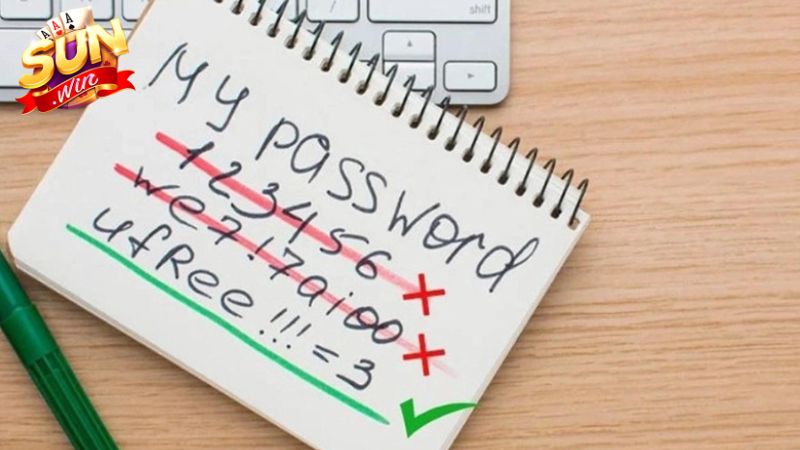 SUN
.Win
shift
My password
123456
we7!7aioo
ufRee!!!=3